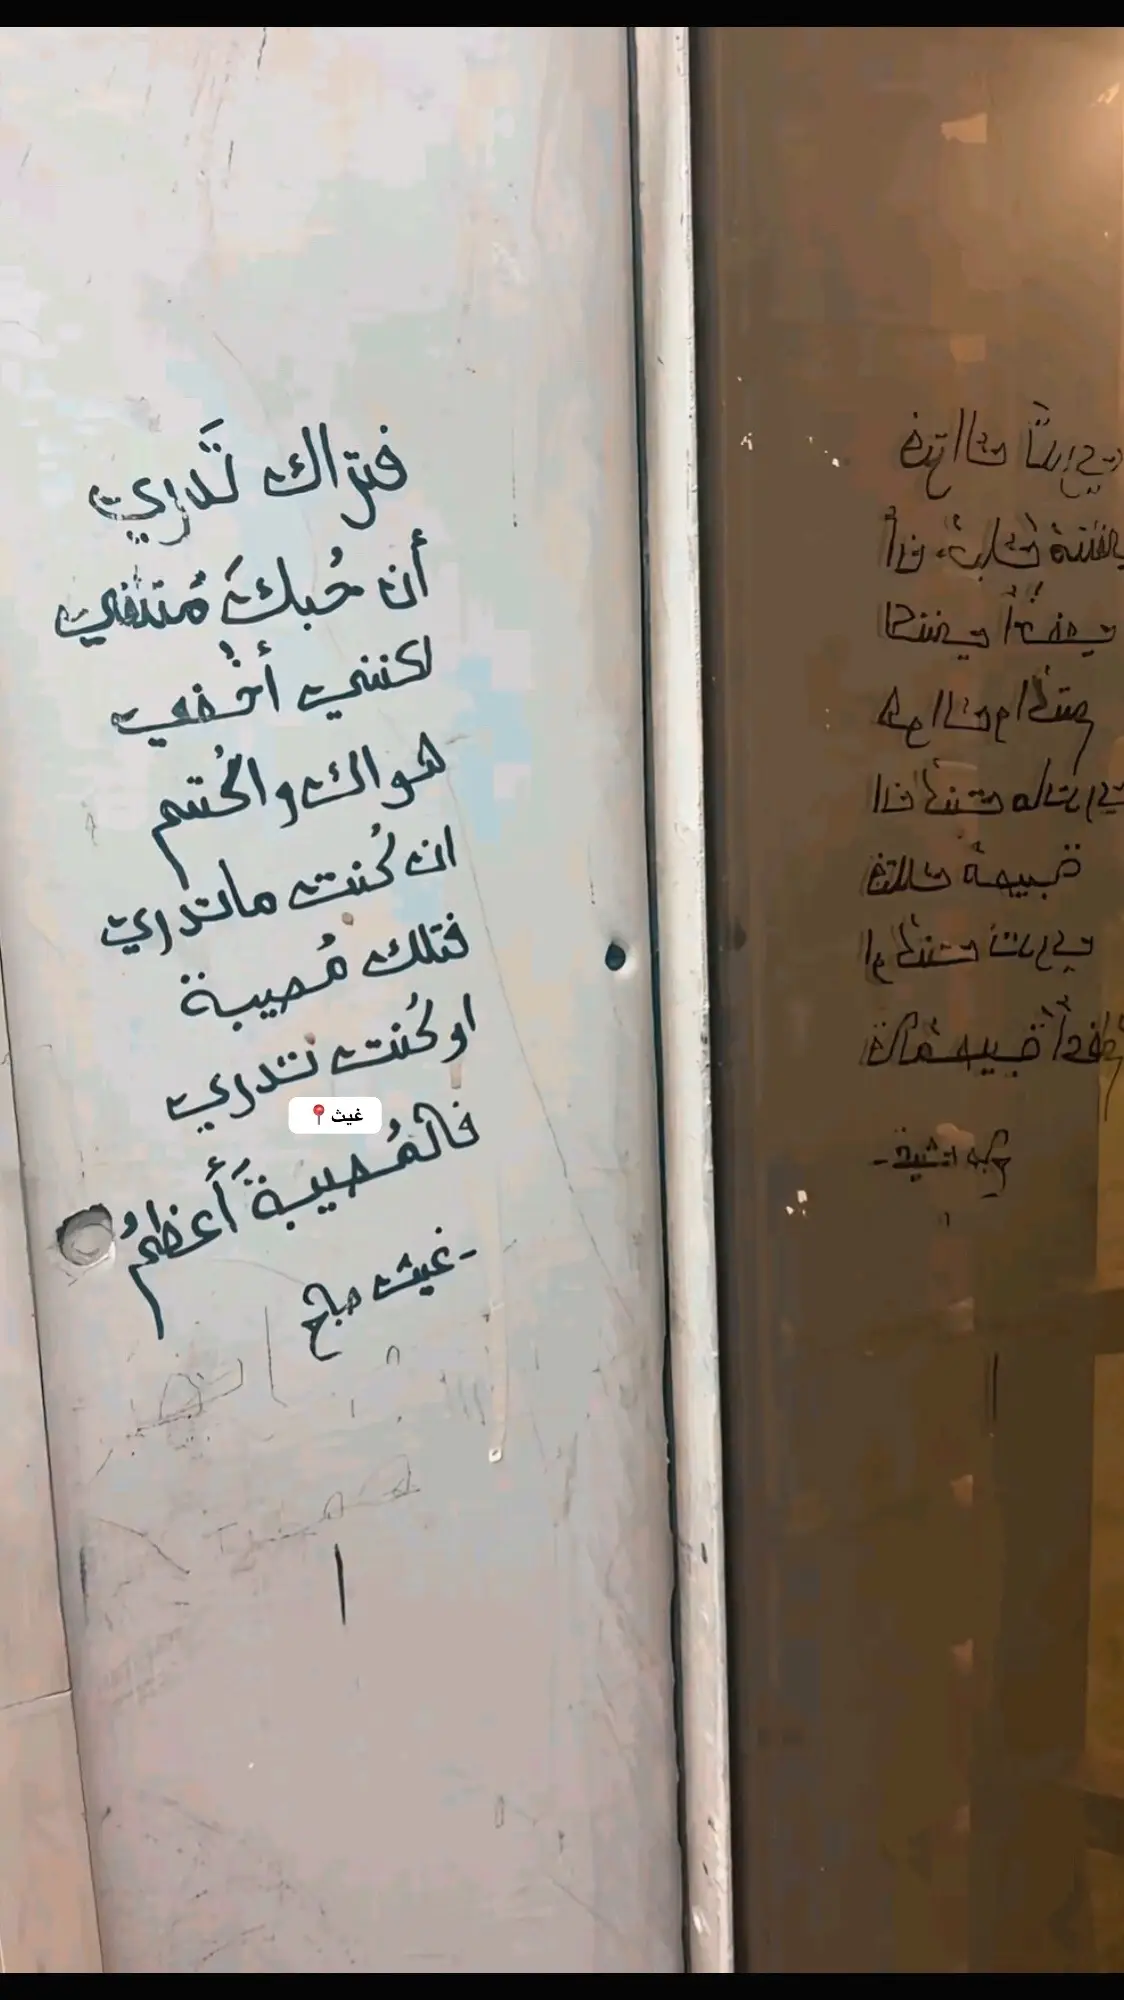 فتراك تَدري
أن حُبكَ مُتلفي
لكنني أُخفي
هواك واكُتم
ان كُنت ماتدري
فتلك مُصيبة
او كُنت تدري
غيث📍
فالمُصيبةَ أَعظمُ
-غيث